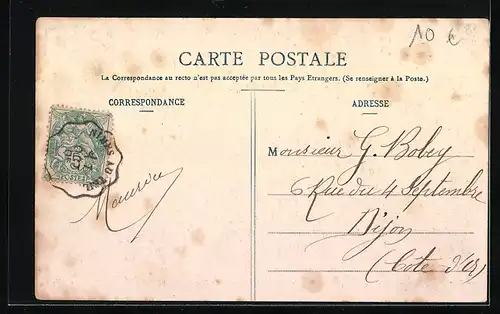 10 €
CARTE POSTALE
La Correspondance au recto n'est pas acceptée par tous les Pays Etrangers. (Se renseigner à la Poste.)
CORRESPONDANCE
ADRESSE
POSTES
Monsieur G. Bobey
6 Rue du 4 Septembre
Dijon
(Cote d'Or)